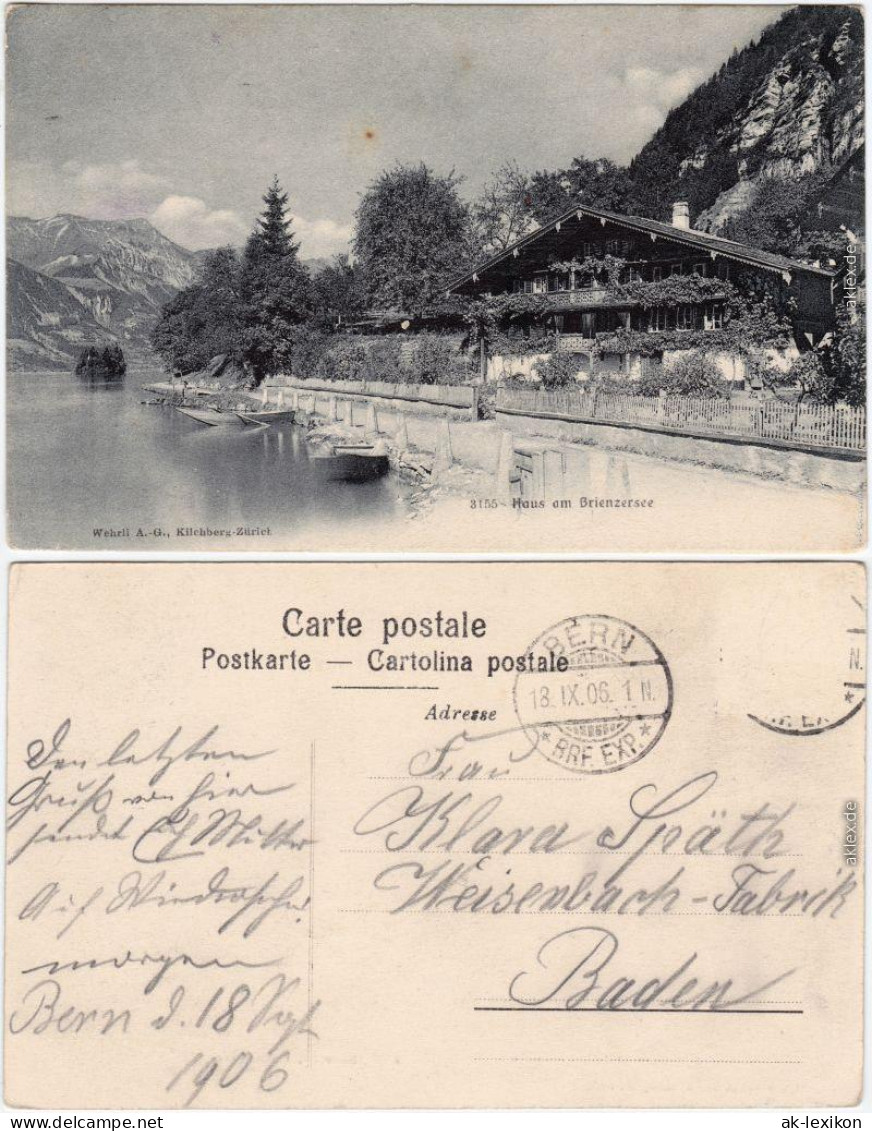 3155 - Haus am Brienzersee
Wehrli A.-G., Kilchberg-Zürich
Carte postale
Postkarte — Cartolina postale
Adresse
BERN
18. IX. 06. 1 N.
* BRF. EXP. *
N.
BRF. EXP. *
Den letzten
Gruß von hier
sendet Mutter
Auf Wiedersehn
morgen
Bern d. 18 Sept
1906
Frau
Klara Späth
Weisenbach-Fabrik
Baden
aklex.de
aklex.de
ak-lexikon